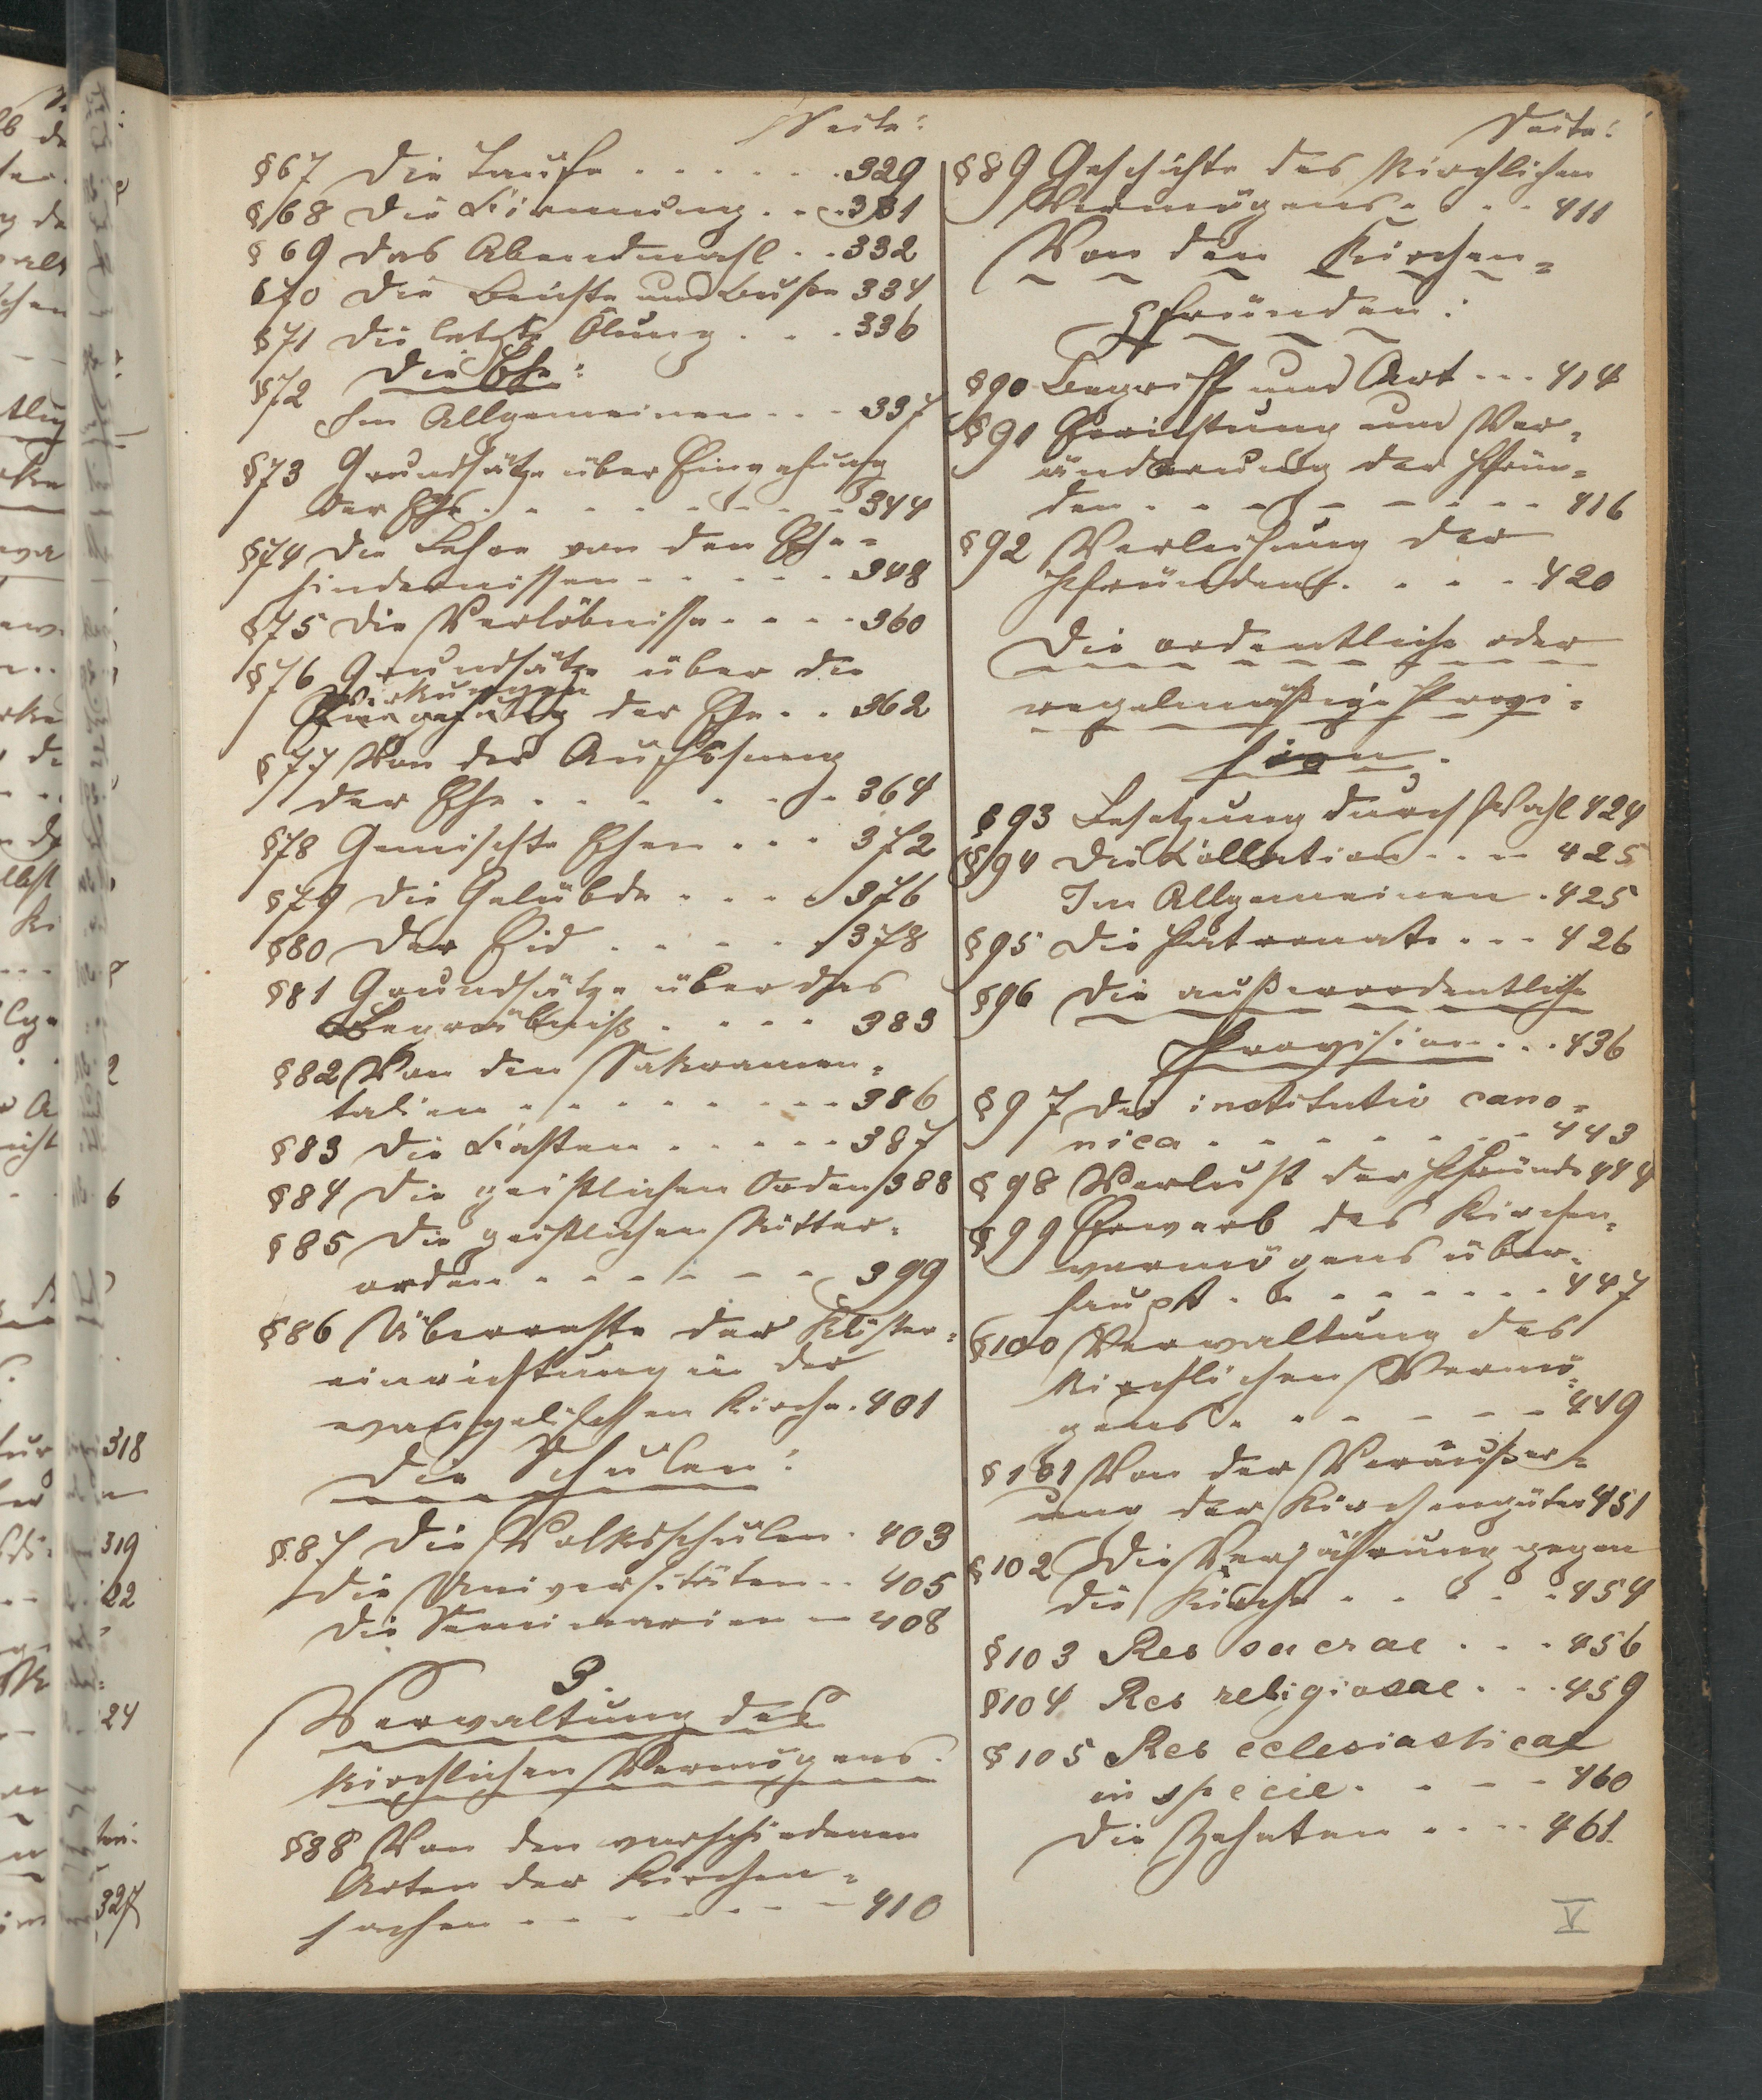 Seite:
§67 Die Taufe . . . . . . 329
§68 Die Firmung . . . 331
§69 Das Abendmahl . . 332
§70 Die Beichte und Buße 334
§71 Die letzte Ölung . . . 336
§72 Die Ehe:
Im Allgemeinen . . . 337
§73 Grundsätze über Eingehung
der Ehe . . . . . . . . 344
§74 Die Lehre von den Ehe=
hindernissen . . . . . 348
§75 Die Verlöbnisse . . . . 360
§76 Grundsätze über die
Wirkungen
Eingehung der Ehe . . 362
§77 Von der Auflösung
der Ehe . . . . . . . 364
§78 Gemischte Ehen . . . 372
§79 Die Gelübde . . . . 376
§80 Der Eid . . . . . 378
§81 Grundsätze über das
Begräbniß . . . . . 383
§82 Von den Sakramen=
talien . . . . . . . . . 386
§83 Die Fasten . . . . . 387
§84 Die geistlichen Orden 388
§85 Die geistlichen Ritter=
orden . . . . . . . 399
§86 Überreste der Kloster=
einrichtung in der
evangelischen Kirche . 401
Die Schulen:
§87 Die Volksschulen . 403
Die Universitäten . . 405
Die Seminarien — 408
3.
Verwaltung des
kirchlichen Vermögens.
§88 Von den verschiedenen
Arten der Kirchen=
sachen . . . . . . . . 410
Seite:
§89 Geschichte des kirchlichen
Vermögens . . . . 411
Von den Kirchen=
pfründen:
§90 Begriff und Art . . . 414
§91 Errichtung und Ver=
änderung der Pfrün=
den . . . . . . . . . 416
§92 Verleihung der
Pfründen . . . . . 420
Die ordentliche oder
regelmäßige Provi=
sion.
§93 Besetzung durch Wahl 424
§94 Die Kollation . . . — 425
Im Allgemeinen . 425
§95 Die Patronate . . . 426
§96 Die außerordentliche
Provision . . . 436
§97 Die institutio cano=
nica . . . . . . . . 443
§98 Verlust der Pfründe 444
§99 Erwerb des Kirchen=
vermögens über=
haupt . . . . . . . . 447
§100 Verwaltung des
kirchlichen Vermö=
gens . . . . . . . 449
§101 Von der Veräußer=
ung der Kirchengüter 451
§102 Die Verjährung gegen
die Kirche . . . . . 454
§103 Res sacrae . . . 456
§104 Res religiosae . . . 459
§105 Res eclesiasticae
in specie . . . . . 460
Die Zehnten . . . . 461.
V
318
319
22
24
327